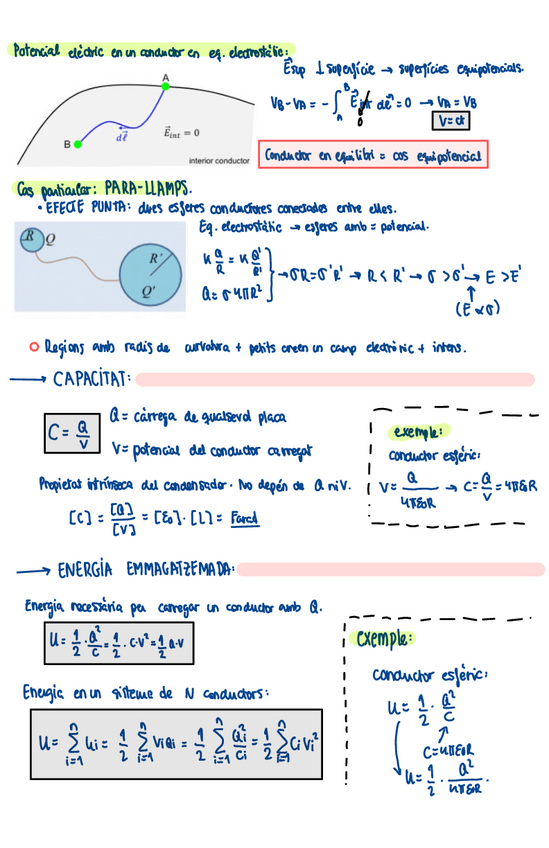 Potencial elèctric en un conductor en eq. electrostàtic:
A
B
dℓ⃗
E⃗int = 0
interior conductor
E⃗sup ⊥ superfície → superfícies equipotencials.
VB - VA = - ∫_A^B E⃗int dℓ⃗ = 0 → VA = VB
0
V = ct
Conductor en equilibri = cos equipotencial
Cas particular: PARA-LLAMPS.
• EFECTE PUNTA: dues esferes conductores conectades entre elles.
Eq. electrostàtic → esferes amb = potencial.
R Q
R'
Q'
K Q/R = K Q'/R'
Q = σ 4πR²
} → σR = σ'R' → R < R' → σ > σ' → E > E'
↑
(E ∝ σ)
Regions amb radis de curvatura + petits creen un camp electrònic + intens.
→ CAPACITAT:
C = Q/V
Q = càrrega de qualsevol placa
V = potencial del conductor carregat
Propietat intrínseca del condensador. No depèn de Q ni V.
[C] = [Q]/[V] = [ε0]·[L] = Farad
exemple:
conductor esfèric:
V = Q/4πε0R → C = Q/V = 4πε0R
→ ENERGÍA EMMAGATZEMADA:
Energia necessària per carregar un conductor amb Q.
U = 1/2 · Q²/C = 1/2 · C·V² = 1/2 Q·V
Energia en un sistema de N conductors:
U = ∑_{i=1}^{n} Ui = 1/2 ∑_{i=1}^{n} Vi Qi = 1/2 ∑_{i=1}^{n} Qi²/Ci = 1/2 ∑_{i=1}^{n} Ci Vi²
exemple:
conductor esfèric:
U = 1/2 · Q²/C
↑
C = 4πε0R
U = 1/2 · Q²/4πε0R.